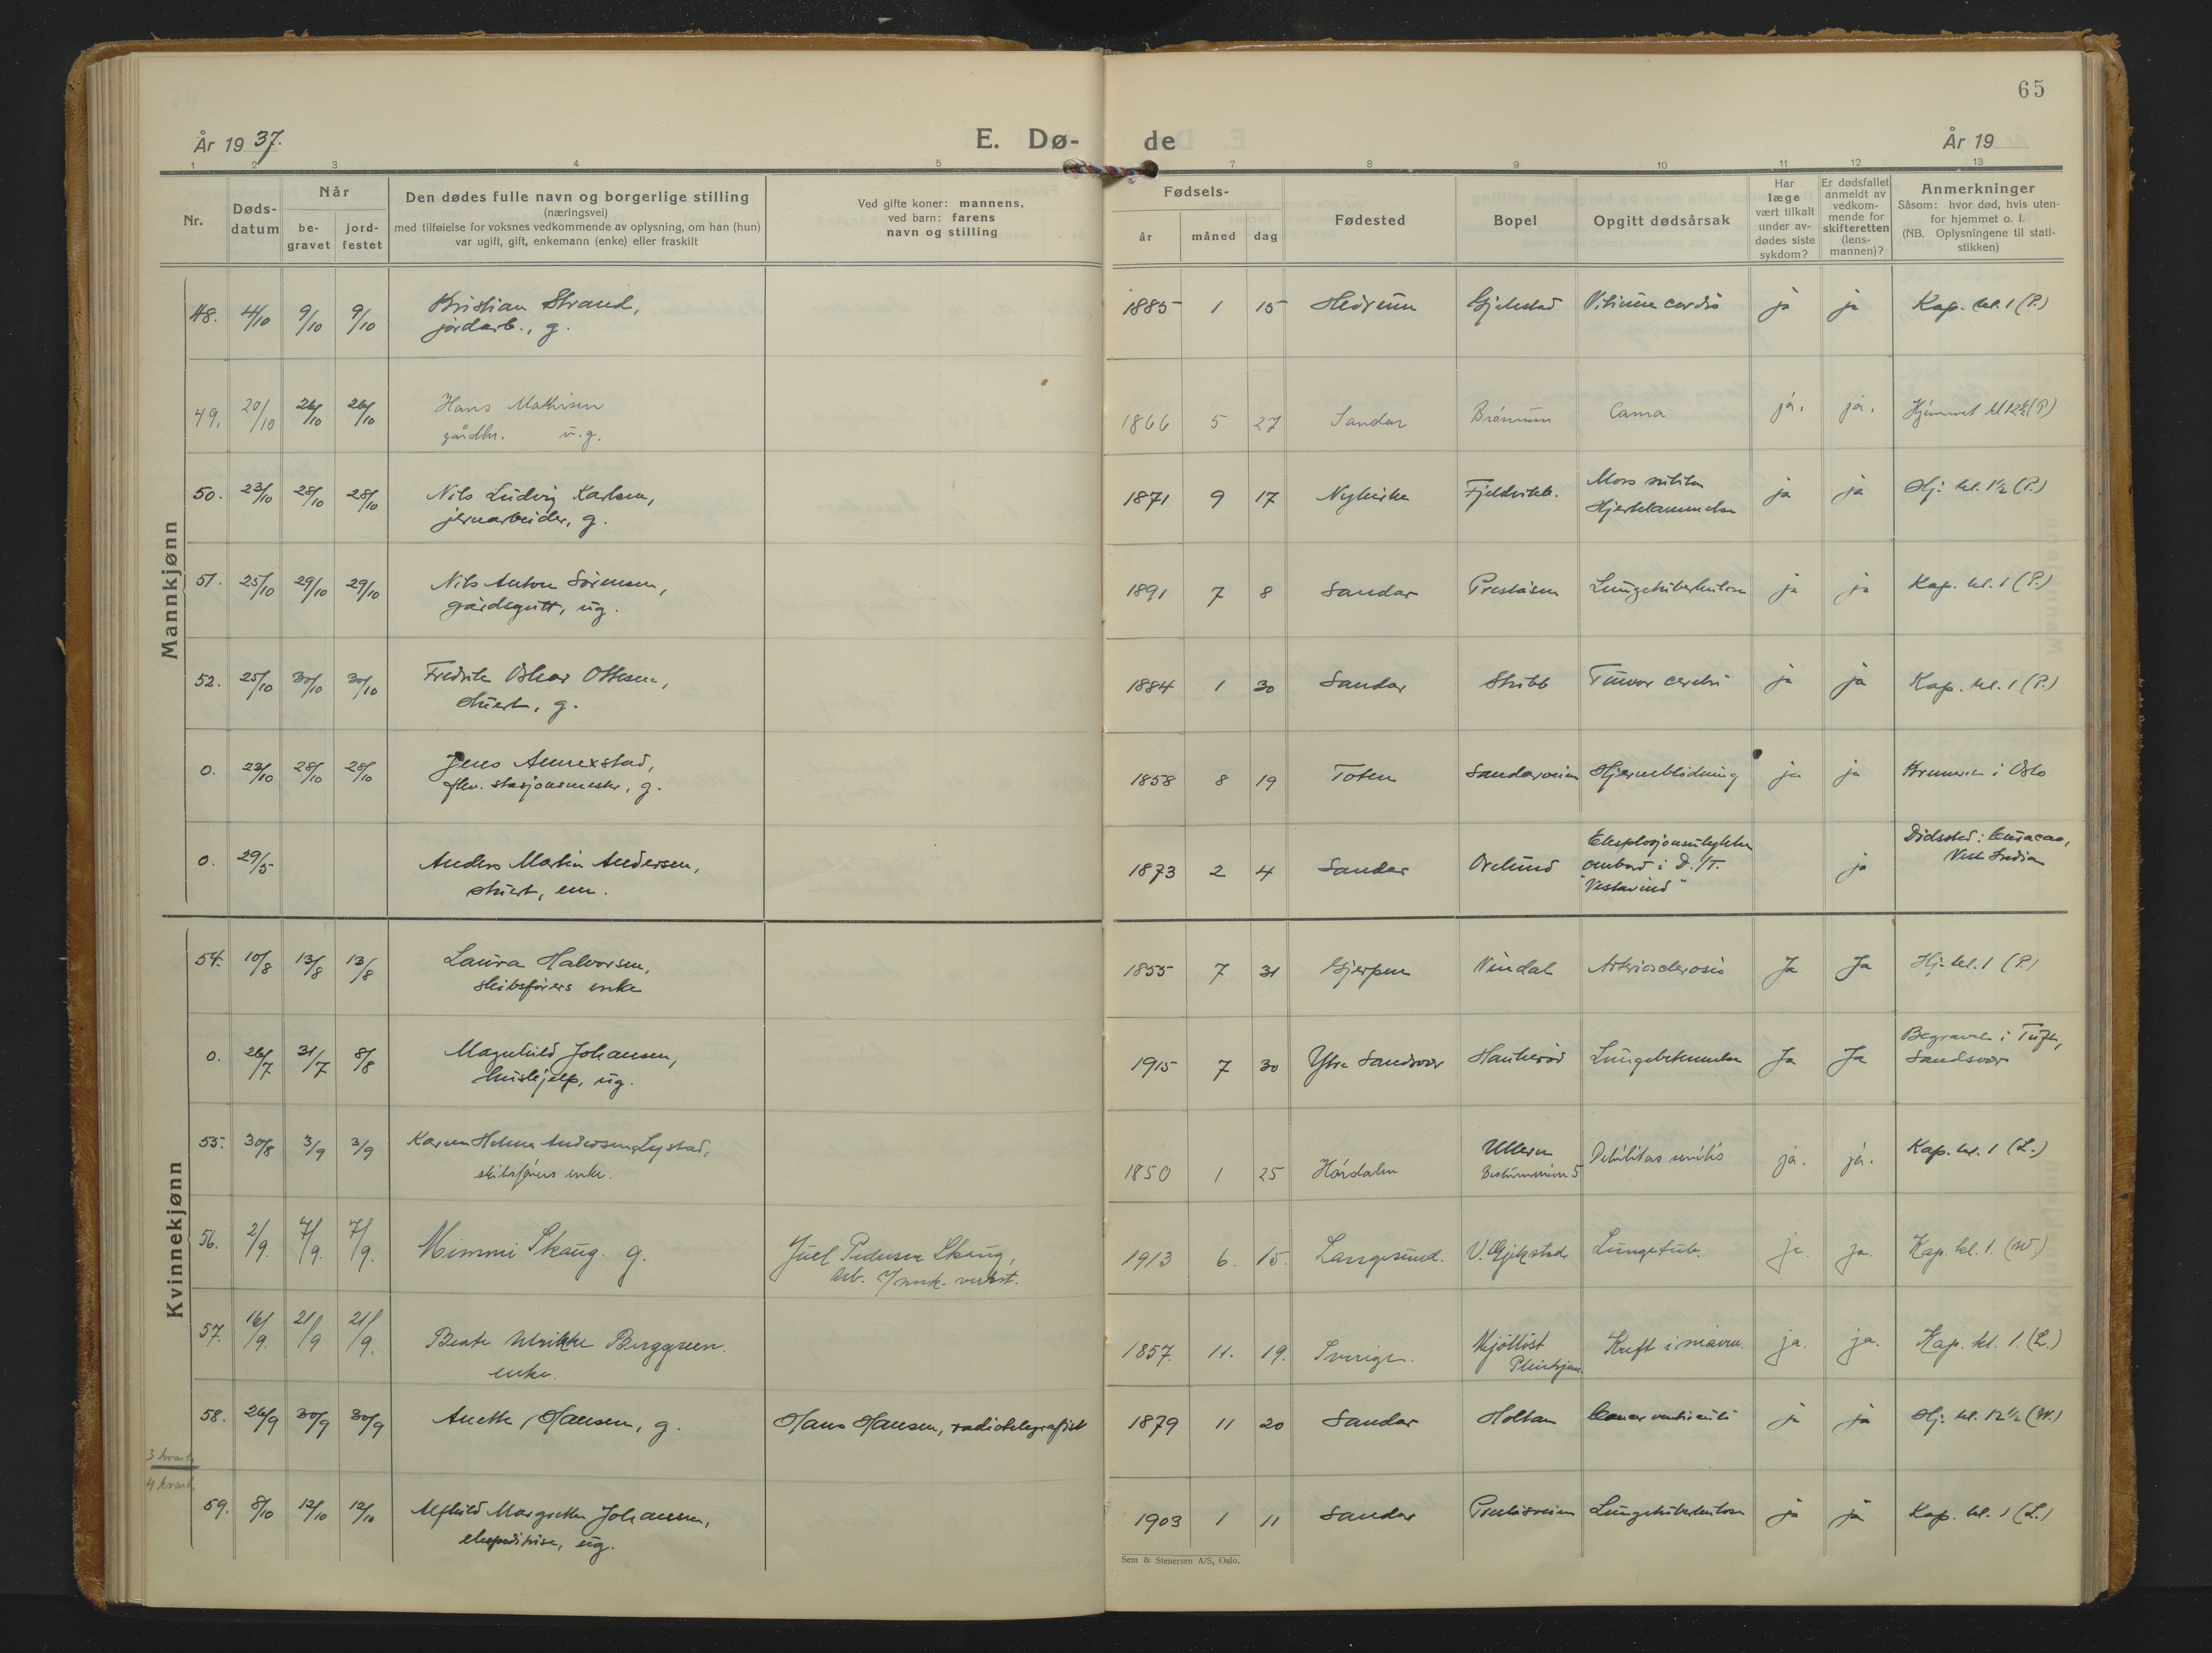 65
År 19 37.
E. Dø-
de
År 19
1 2 3 4 5 7 8 9 10 11 12 13
Nr.
Døds-
datum
Når
be-
gravet
jord-
festet
Den dødes fulle navn og borgerlige stilling
(næringsvei)
med tilføielse for voksnes vedkommende av oplysning, om han (hun)
var ugift, gift, enkemann (enke) eller fraskilt
Ved gifte koner: mannens,
ved barn: farens
navn og stilling
Fødsels-
år måned dag
Fødested
Bopel
Opgitt dødsårsak
Har
læge
vært tilkalt
under av-
dødes siste
sykdom?
Er dødsfallet
anmeldt av
vedkom-
mende for
skifteretten
(lens-
mannen)?
Anmerkninger
Såsom: hvor død, hvis uten-
for hjemmet o. l.
(NB. Oplysningene til stati-
stikken)
Mannkjønn
48. 4/10 9/10 9/10 Kristian Strand, 1885 1 15 Hedrum Gjekstad Vitium cordis ja ja Kap. kl. 1 (P.)
jordarb., g.
49. 20/10 26/10 26/10 Hans Mathisen 1866 5 27 Sandar ja. ja. Hjemmet kl 12½ (P)
gårdbr. u.g.
50. 23/10 28/10 28/10 Nils Ludvig Karlsen, 1871 9 17 Nykirke Fjeldvikb. Mors subita ja ja Hj. kl. 1½ (P.)
jernarbeider, g. Hjertelammelse
51. 25/10 29/10 29/10 Nils Anton Sörensen, 1891 7 8 Sandar Preståsen Lungetuberkulose ja ja Kap. kl. 1 (P.)
gårdsgutt, ug.
52. 25/10 30/10 30/10 Fredrik Oskar Ottesen, 1884 1 30 Sandar Skibb Tumor cerebri ja ja Kap. kl. 1 (P.)
stuert, g.
0. 23/10 28/10 28/10 Jens Annexstad, 1858 8 19 Toten Sandarveien Hjerneblödning ja ja i Oslo
stasjonsmester, g.
0. 29/5 Anders Martin Andersen, 1873 2 4 Sandar Orelund Eksplosjonsulykke ja Dödssted: Curacao,
stuert, em. ombord i D./T. Vest India
"Vestavind"
Kvinnekjønn
54. 10/8 13/8 13/8 Laura Halvorsen, 1855 7 31 Gjerpen Vindal Arteriosclerosis Ja Ja Hj. kl. 1 (P.)
skibsförers enke
0. 26/7 31/7 8/8 Magnhild Johansen, 1915 7 30 Ytre Sandsvær Haukeröd Lungebetennelse Ja Ja Begravet i Tuft,
hushjelp, ug. Sandsvær
55. 30/8 3/9 3/9 Karen Helene Andersen Lystad, 1850 1 25 Ullern Debilitas senilis ja. ja. Kap. kl. 1 (L.)
skibsförers enke.
56. 2/9. 7/9. 7/9. Mimmi Skaug. g. Juel Pedersen Skaug, 1913 6. 15. Langesund. V. Gjekstad. Lungetub. ja. ja. Kap. kl. 1. (W)
arb.
57. 16/9. 21/9 21/9. Beate Ulrikke Berggreen. 1857. 11. 19. Sverige. Mjöllöst Kreft i maven. ja. ja. Kap. kl. 1. (L.)
enke.
58. 26/9 30/9 30/9 Anette Hansen, g. Hans Hansen, radiotelegrafist 1879 11 20 Sandar Holtan Cancer ventriculi ja ja Hj. kl. 12½ (W.)
3 kvart.
4 kvart.
59. 8/10 12/10 12/10 Alfhild Margrethe Johansen, 1903 1 11 Sandar Preståsveien Lungetuberkulose ja ja Kap. kl. 1 (L.)
ekspeditrise, ug.
Sem & Stenersen A/S, Oslo.